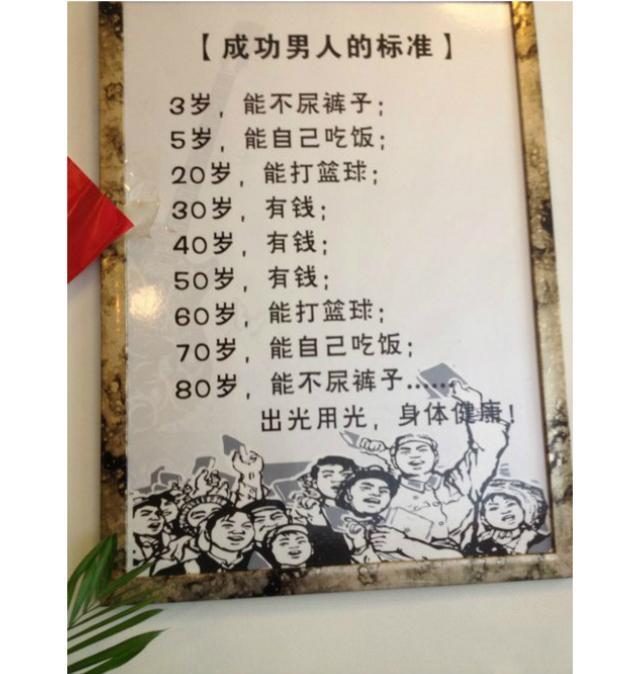 【成功男人的标准】
3岁，能不尿裤子；
5岁，能自己吃饭；
20岁，能打篮球；
30岁，有钱；
40岁，有钱；
50岁，有钱；
60岁，能打篮球；
70岁，能自己吃饭；
80岁，能不尿裤子......
出光用光，身体健康！